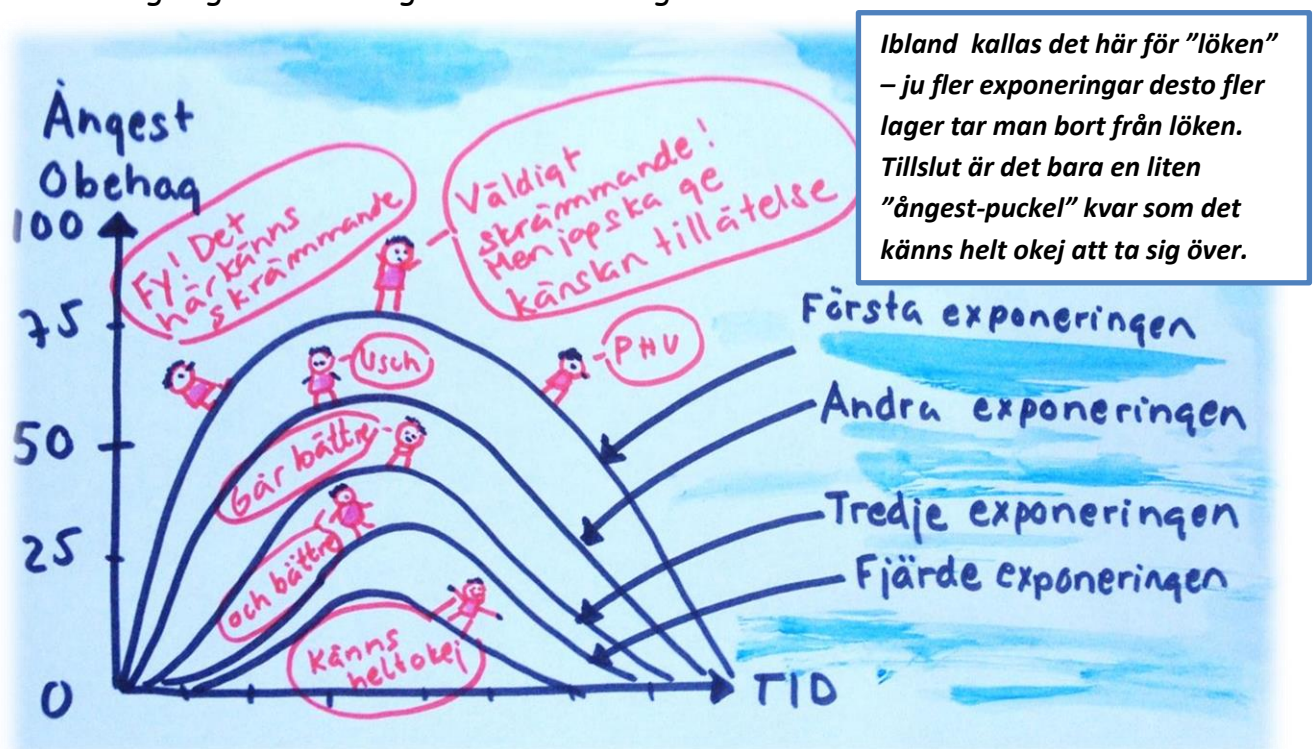 Ibland kallas det här för ”löken”
– ju fler exponeringar desto fler
lager tar man bort från löken.
Tillslut är det bara en liten
”ångest-puckel” kvar som det
känns helt okej att ta sig över.
Ångest
Obehag
100
75
50
25
0
Fy! Det
här känns
skrämmande
Väldigt
skrämmande!
Men jag ska ge
känslan tillåtelse
Usch
PHU
Går bättre
och bättre
Känns
helt okej
Första exponeringen
Andra exponeringen
Tredje exponeringen
Fjärde exponeringen
TID